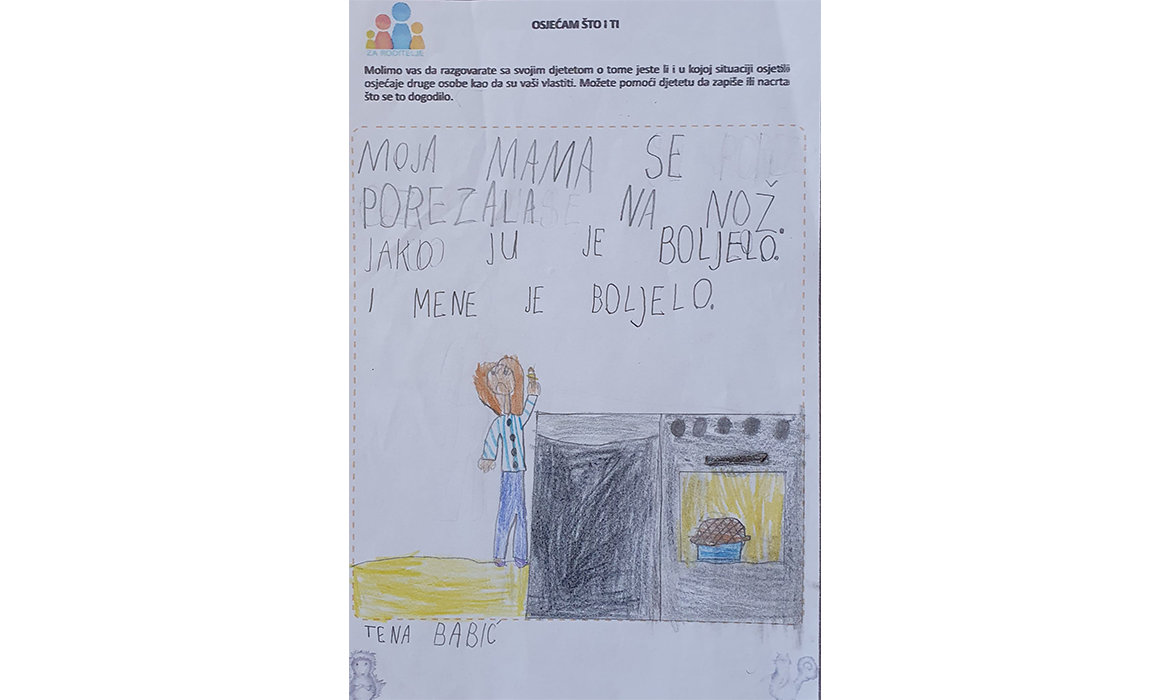 ZA RODITELJE
OSJEĆAM ŠTO I TI
Molimo vas da razgovarate sa svojim djetetom o tome jeste li i u kojoj situaciji osjetili
osjećaje druge osobe kao da su vaši vlastiti. Možete pomoći djetetu da zapiše ili nacrta
što se to dogodilo.
MOJA MAMA SE
POREZALA NA NOŽ.
JAKO JU JE BOLJELO.
I MENE JE BOLJELO.
TENA BABIĆ